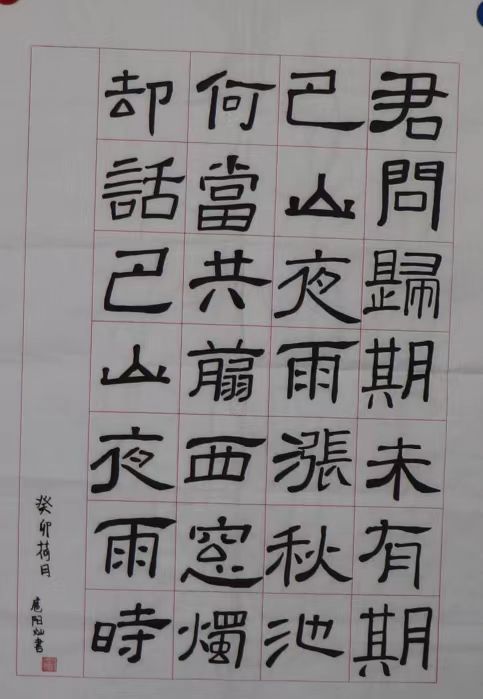 君問歸期未有期
巴山夜雨漲秋池
何當共翦西窓燭
却話巴山夜雨時
癸卯荷月
阳灿書